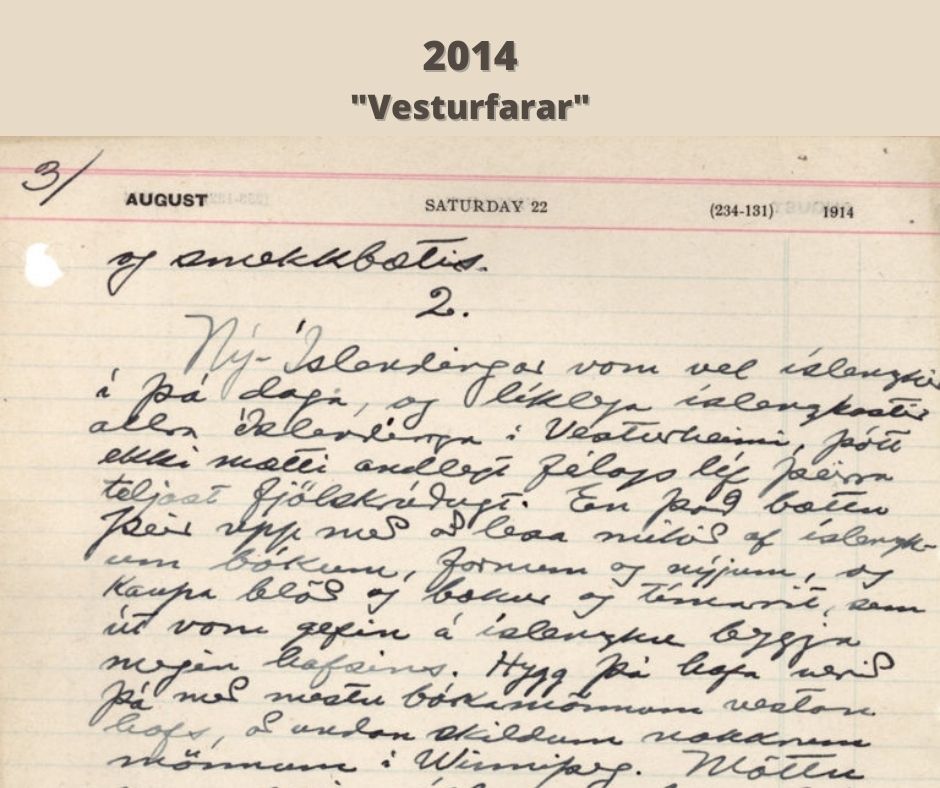 2014
"Vesturfarar"
3/
AUGUST SATURDAY 22 (234-131) 1914
og smekkbætis.
2.
Ný-Íslendingar vom vel íslenzkir
í þá daga, og líklega íslenzkastir
allra Íslendinga í Vesturheimi, þótt
ekki mætti andlegt félags líf þeirra
teljast fjölskrúðugt. En það bættu
þeir upp með að lesa mikið af íslenzk-
um bókum, fornum og nýjum, og
kaupa blöð og bækur og tímarit, sem
út vom gefin á íslenzku beggja
megin hafsins. Hygg þá hafa verið
þá með mestu bókamönnum vestan
hafs, að undan skildum nokkrum
mönnum í Winnipeg. Máttu